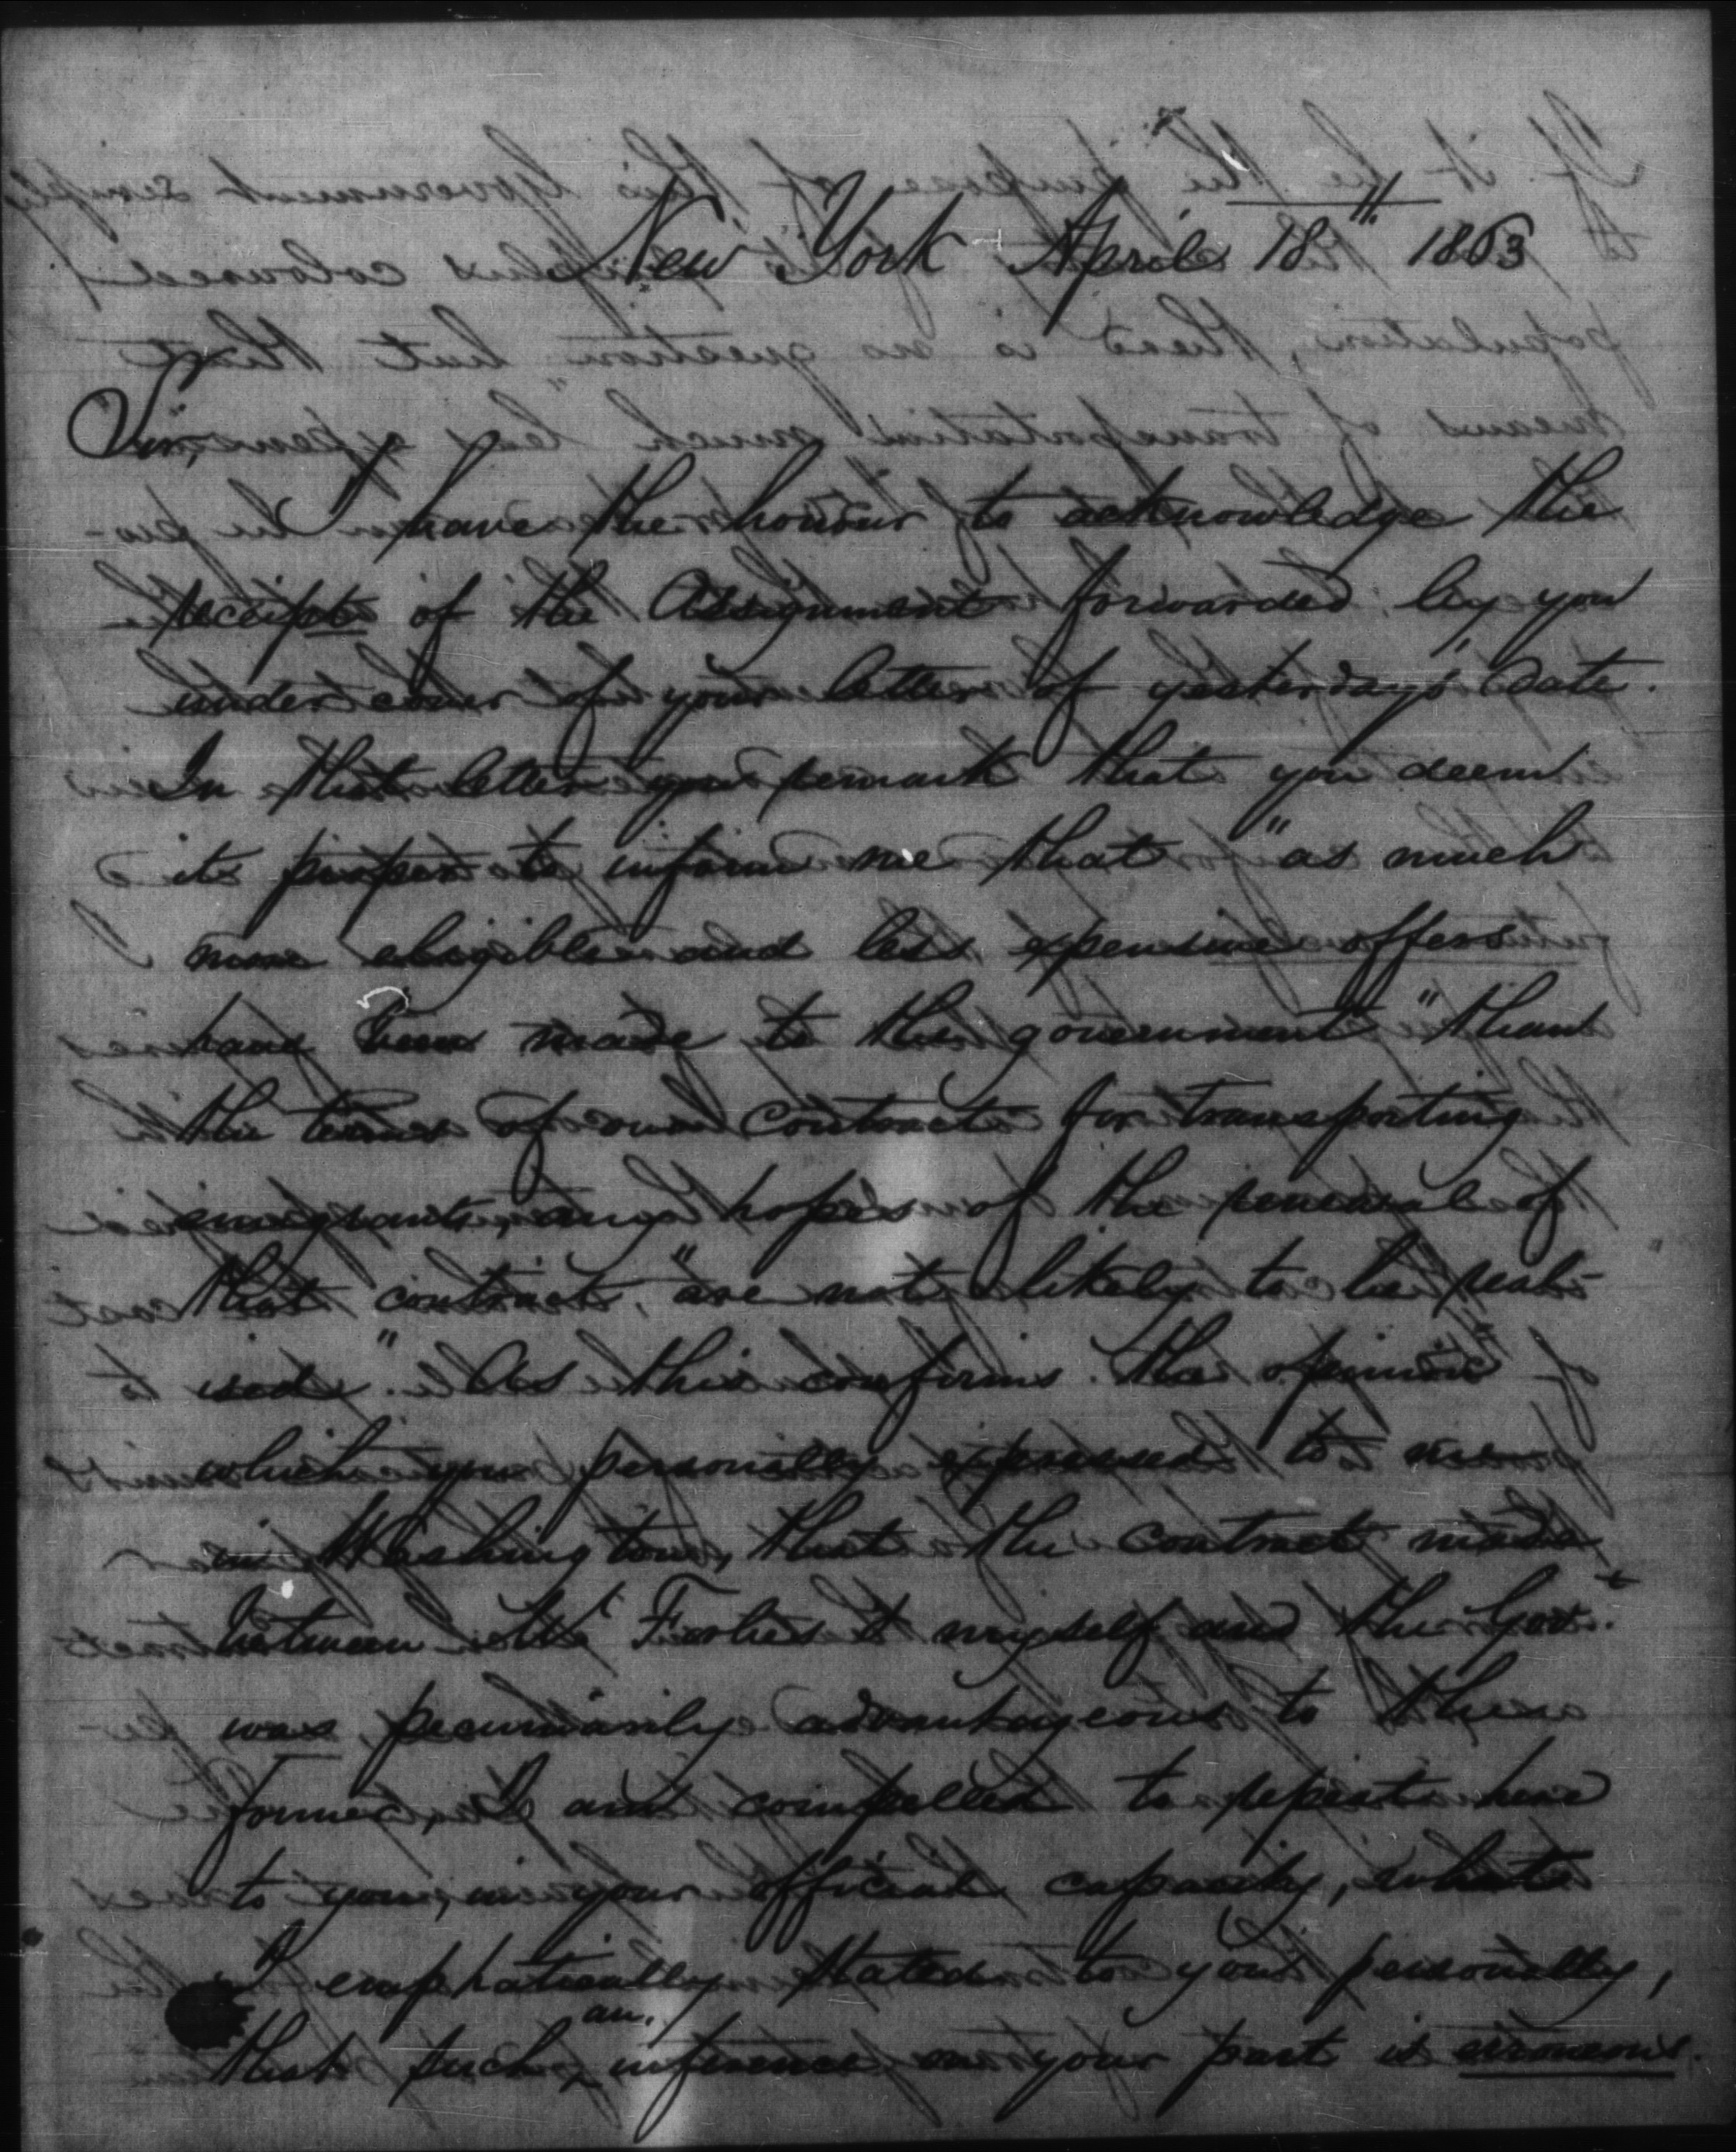 New York April 18th 1863
Sir,
I have the honour to acknowledge the
receipt of the Assignment forwarded by you
under cover of your letter of yesterday's date.
In that letter you remark that you deem
it proper to inform me that "as much
more eligible and less expensive offers
have been made to the government" than
the terms of our Contract for transporting
emigrants, any hopes of the renewal of
that contract, "are not likely to be real-
ised". As this confirms the opinion
which you personally expressed to me
in Washington, that the contract made
between Mr Forbes & myself and the Govt.
was pecuniarily advantageous to the
former, I am compelled to repeat here
to you, in your official capacity, what
I emphatically stated to you personally,
that such an inference on your part is erroneous.